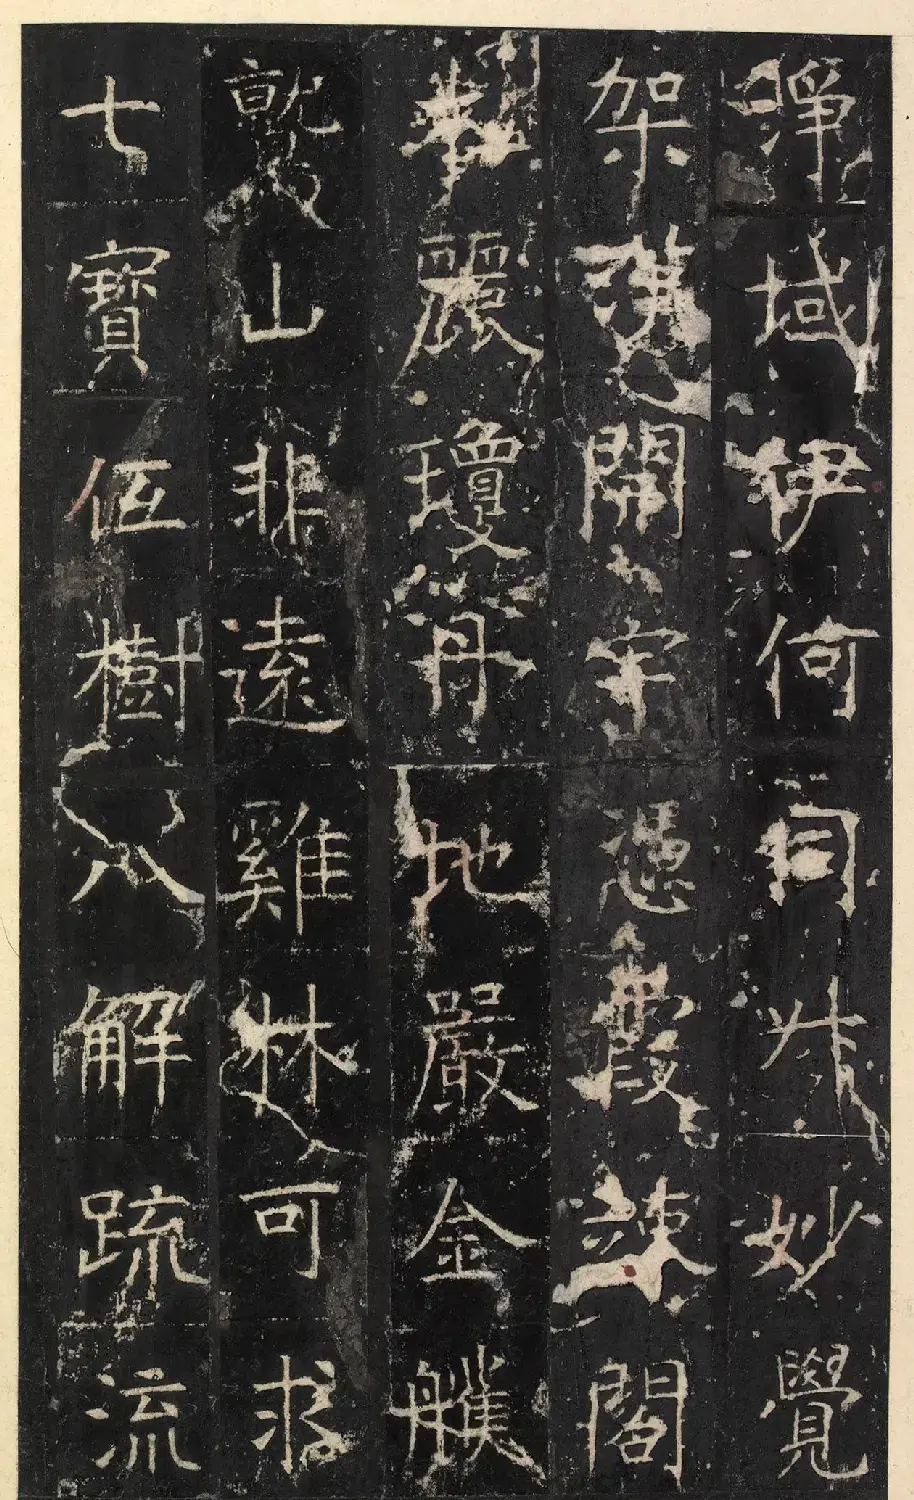 淨域伊何同妙覺
架漢開宇憑霞踈閣
麗瓊丹地嚴金艧
鷲山非遠雞林可求
七寶伍樹八解疏流